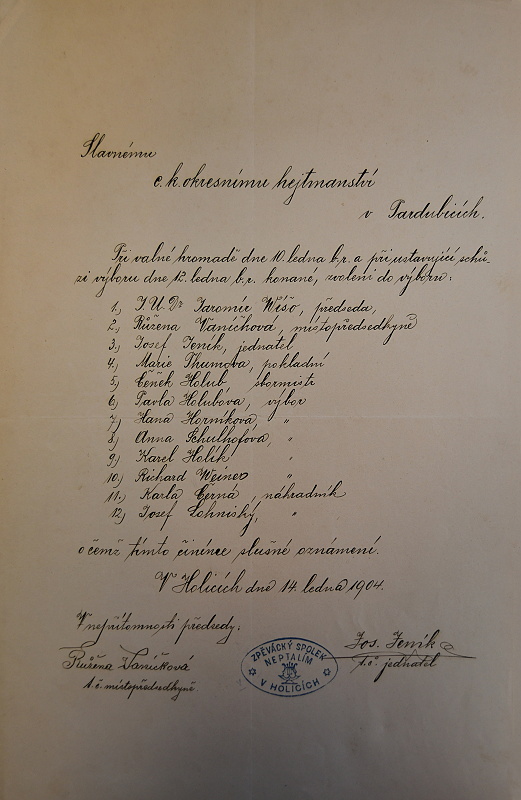 Slavnému
c. k. okresnímu hejtmanství
v Pardubicích.
Při valné hromadě dne 10. ledna b. r. a při ustavující schů-
zi výboru dne 12. ledna b. r. konané, zvoleni do výboru:
1.) J. U. Dr Jaromír, předseda,
2.) Růžena Vaníčková, místopředsedkyně
3.) Josef Jeník, jednatel
4.) Marie Thumova, pokladní
5.) Čeněk Holub, sbormistr
6.) Pavla Holubova, výbor
7.) Hana Horníková, "
8.) Anna Schulhofova, "
9.) Karel Holík "
10.) Richard Weiner "
11.) Karla Černá, náhradník
12.) Josef Lohniský, "
o čemž tímto činíme slušné oznámení.
V Holicích dne 14. ledna 1904.
V nepřítomnosti předsedy:
Růžena Vaníčková
t. č. místopředsedkyně.
ZPĚVÁCKÝ SPOLEK
NEPTALÍM
V HOLICÍCH
Jos. Jeník
t. č. jednatel